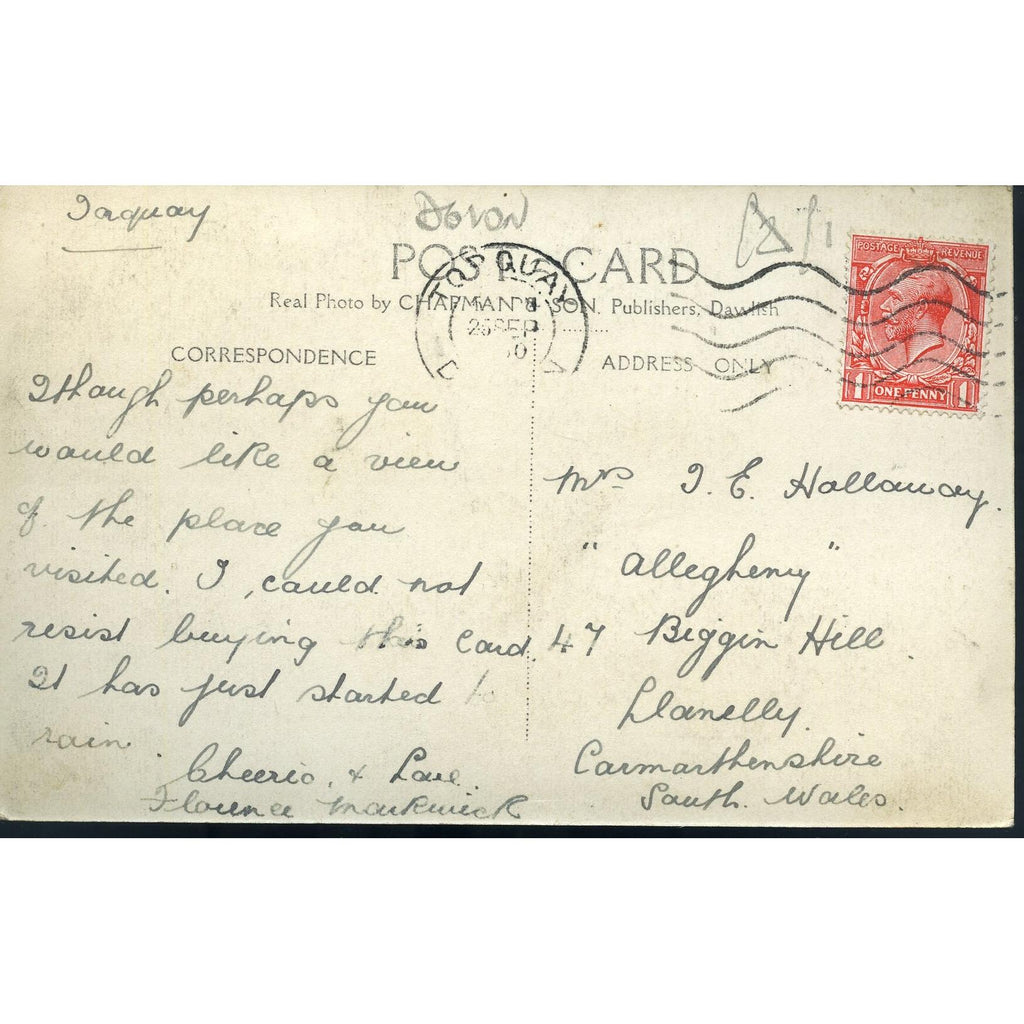 Torquay
Devon
POST CARD
Real Photo by CHAPMAN & SON, Publishers, Dawlish
TORQUAY
25 SEP
CORRESPONDENCE
ADDRESS ONLY
POSTAGE REVENUE
1 ONE PENNY 1
I though perhaps you
would like a view
of the place you
visited. I, could not
resist buying this Card.
It has just started to
rain.
Cheerio, & Love
Florence Markwick
Mrs I. E. Hollaway.
"Allegheny"
47 Biggin Hill
Llanelly.
Carmarthenshire
South. Wales.